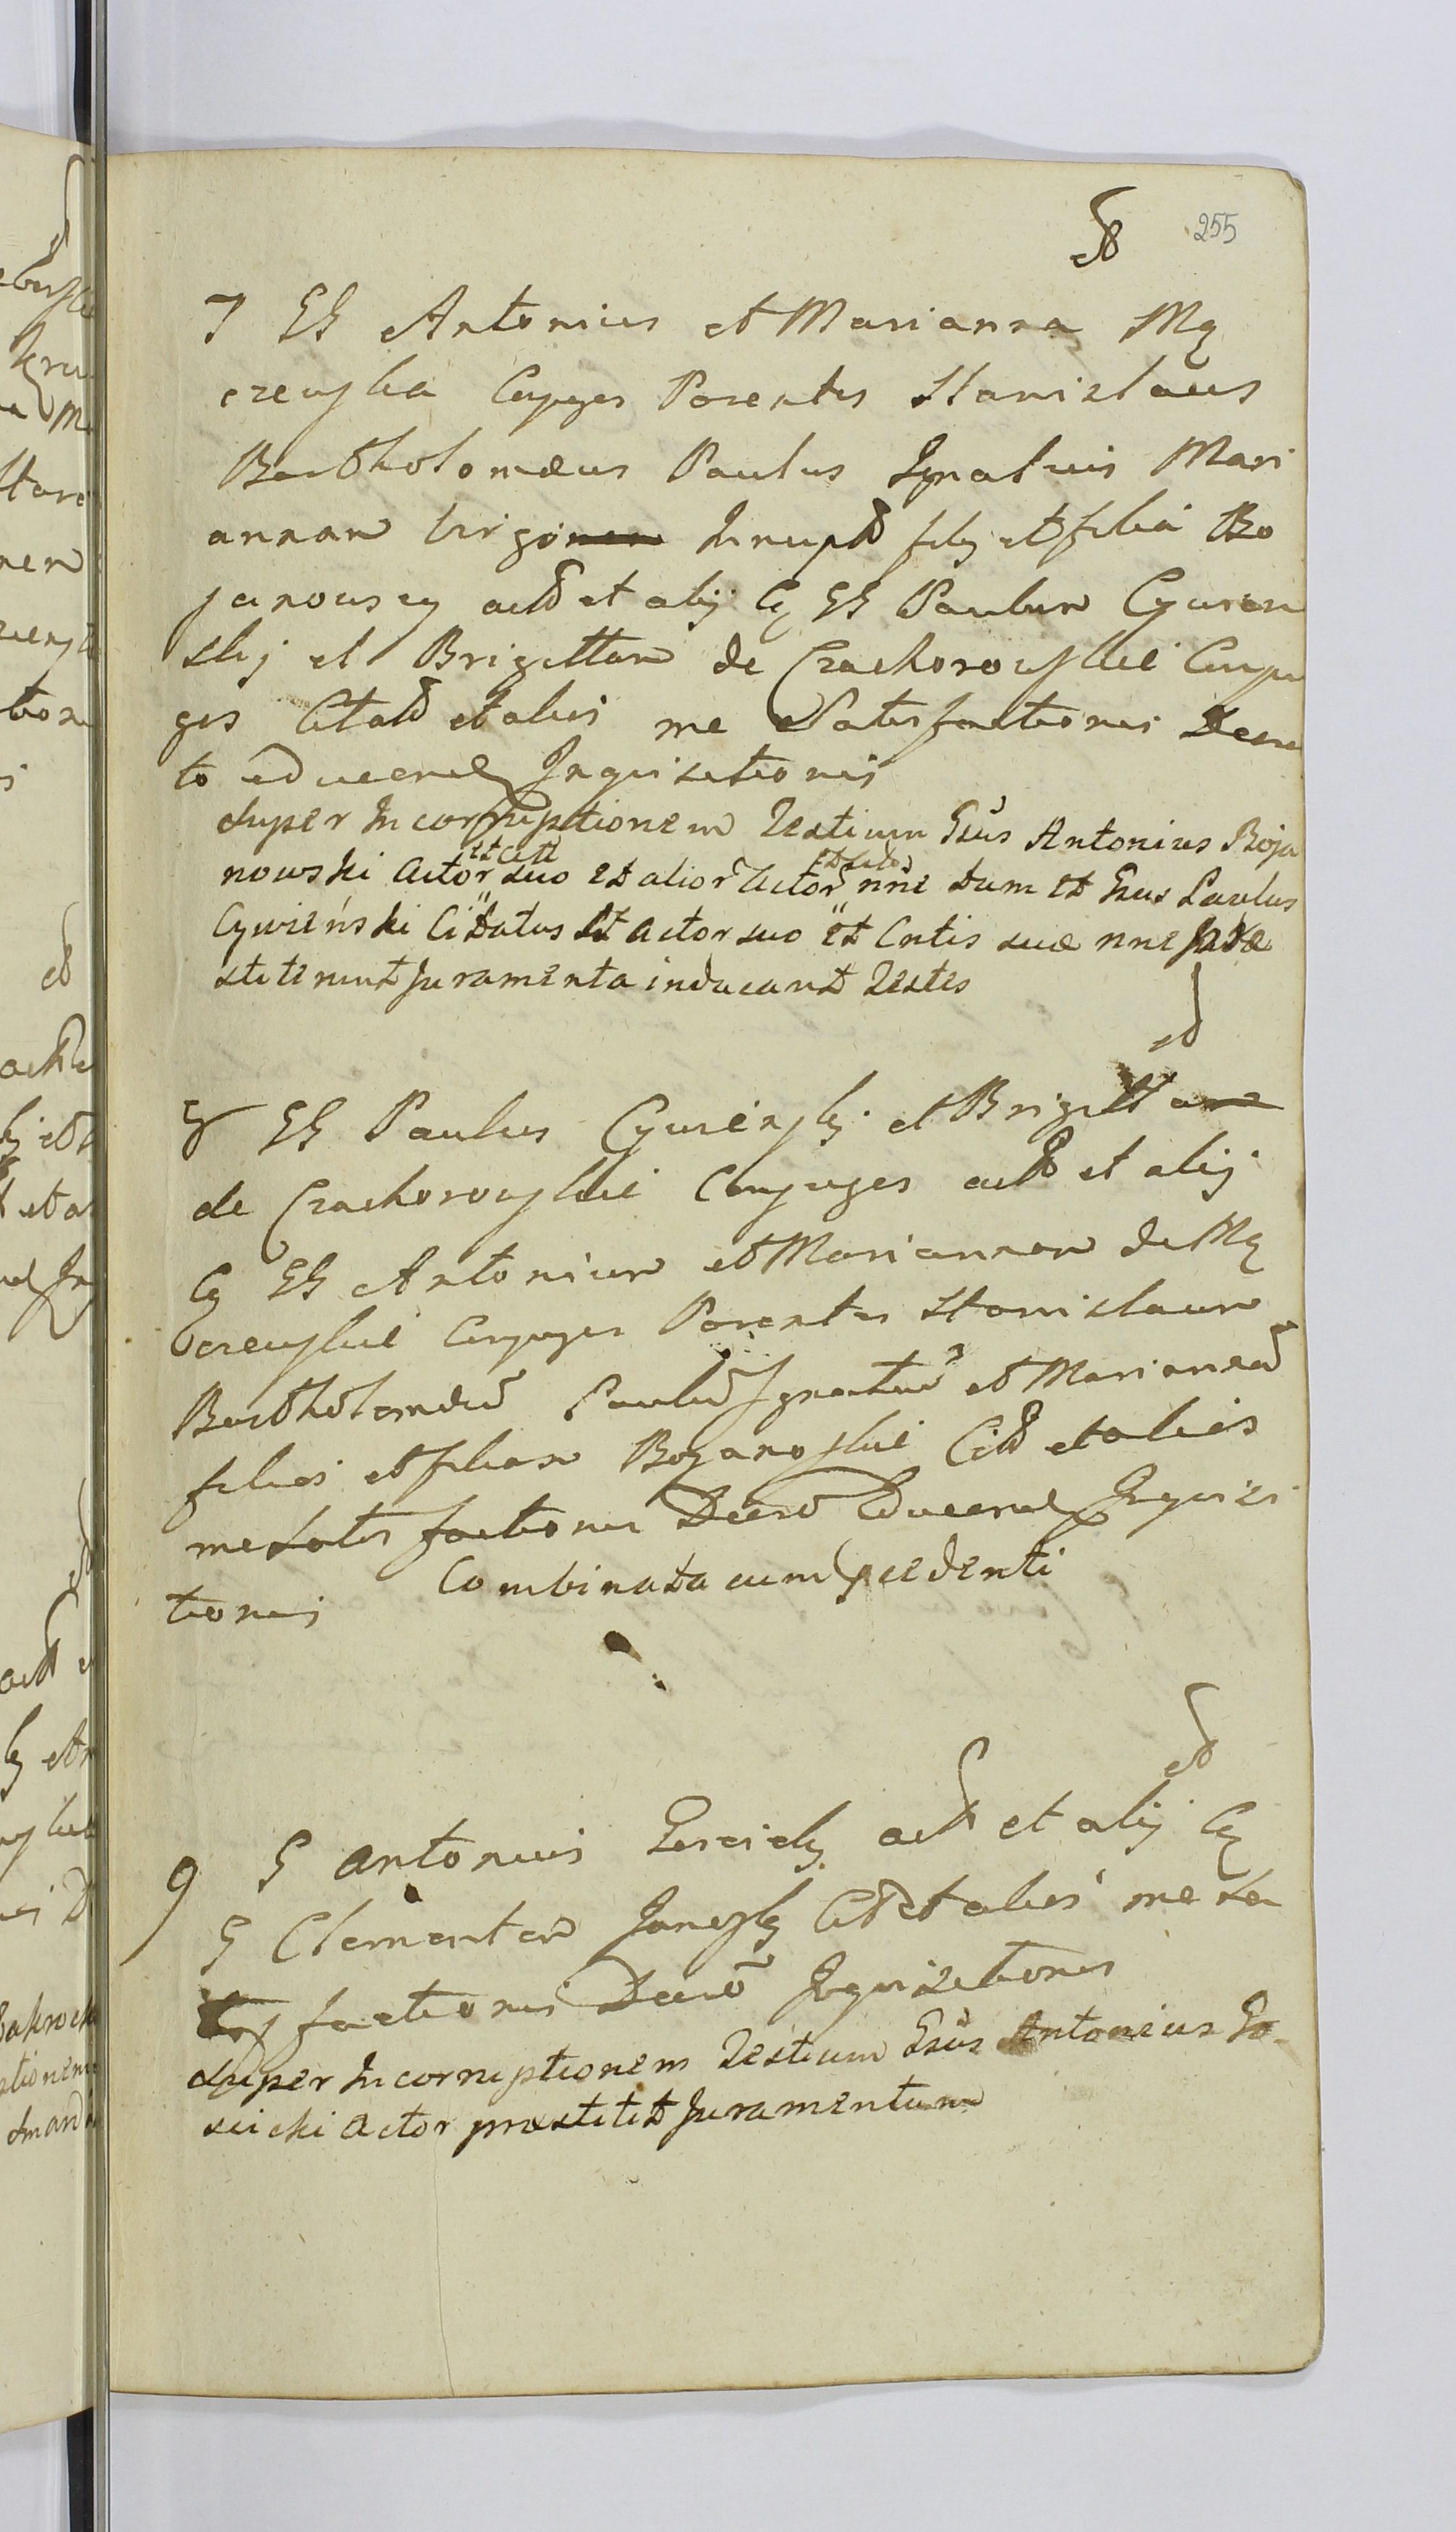 255
7 GG Antonius et Marianna Mą
czewska Conjuges Parentes Stanislaus
Bartholomæus Paulus Ignatius Mari
annam Virgo Innupt filij et filia Bo
janowscy act et alij Cą GG Paulum Cywin
skij et Brigittam de Czachorowskie Conju
ges Citat et alios me Satisfactionis Decre
to educend Inquisitionis
Super Incorruptionem Testium Gsus Antonius Boja
nowski Actor suo et alior Actor nne tum et Gsus Paulus
et Citt
Cywiński Citatus et Actor suo et Cntis suæ nne præ
stiterunt Juramenta inducant Testes
8 GG Paulus Cywinskj et Brigitt
de Czachorowskie Conjuges act et alij
Cą GG Antonium et Mariannam de Mą
czewskie Conjuges Parentes Stanislaum
Bartholomeu Paulu Ignatiu et Marianna
filios et filiam Bojanoskie Citt et alios
me Satisfactionis Decre Educend Inquisi
tionis Combinata cum pcedenti
9 G Antonius Gosicky act et alij Cą
G Clementem Janosky Citt et alios me Sa
factionis Decre Inquisitionis
Super Incorruptionem Testium Gsus Antonius Go-
siicki Actor præstitit Juramentum